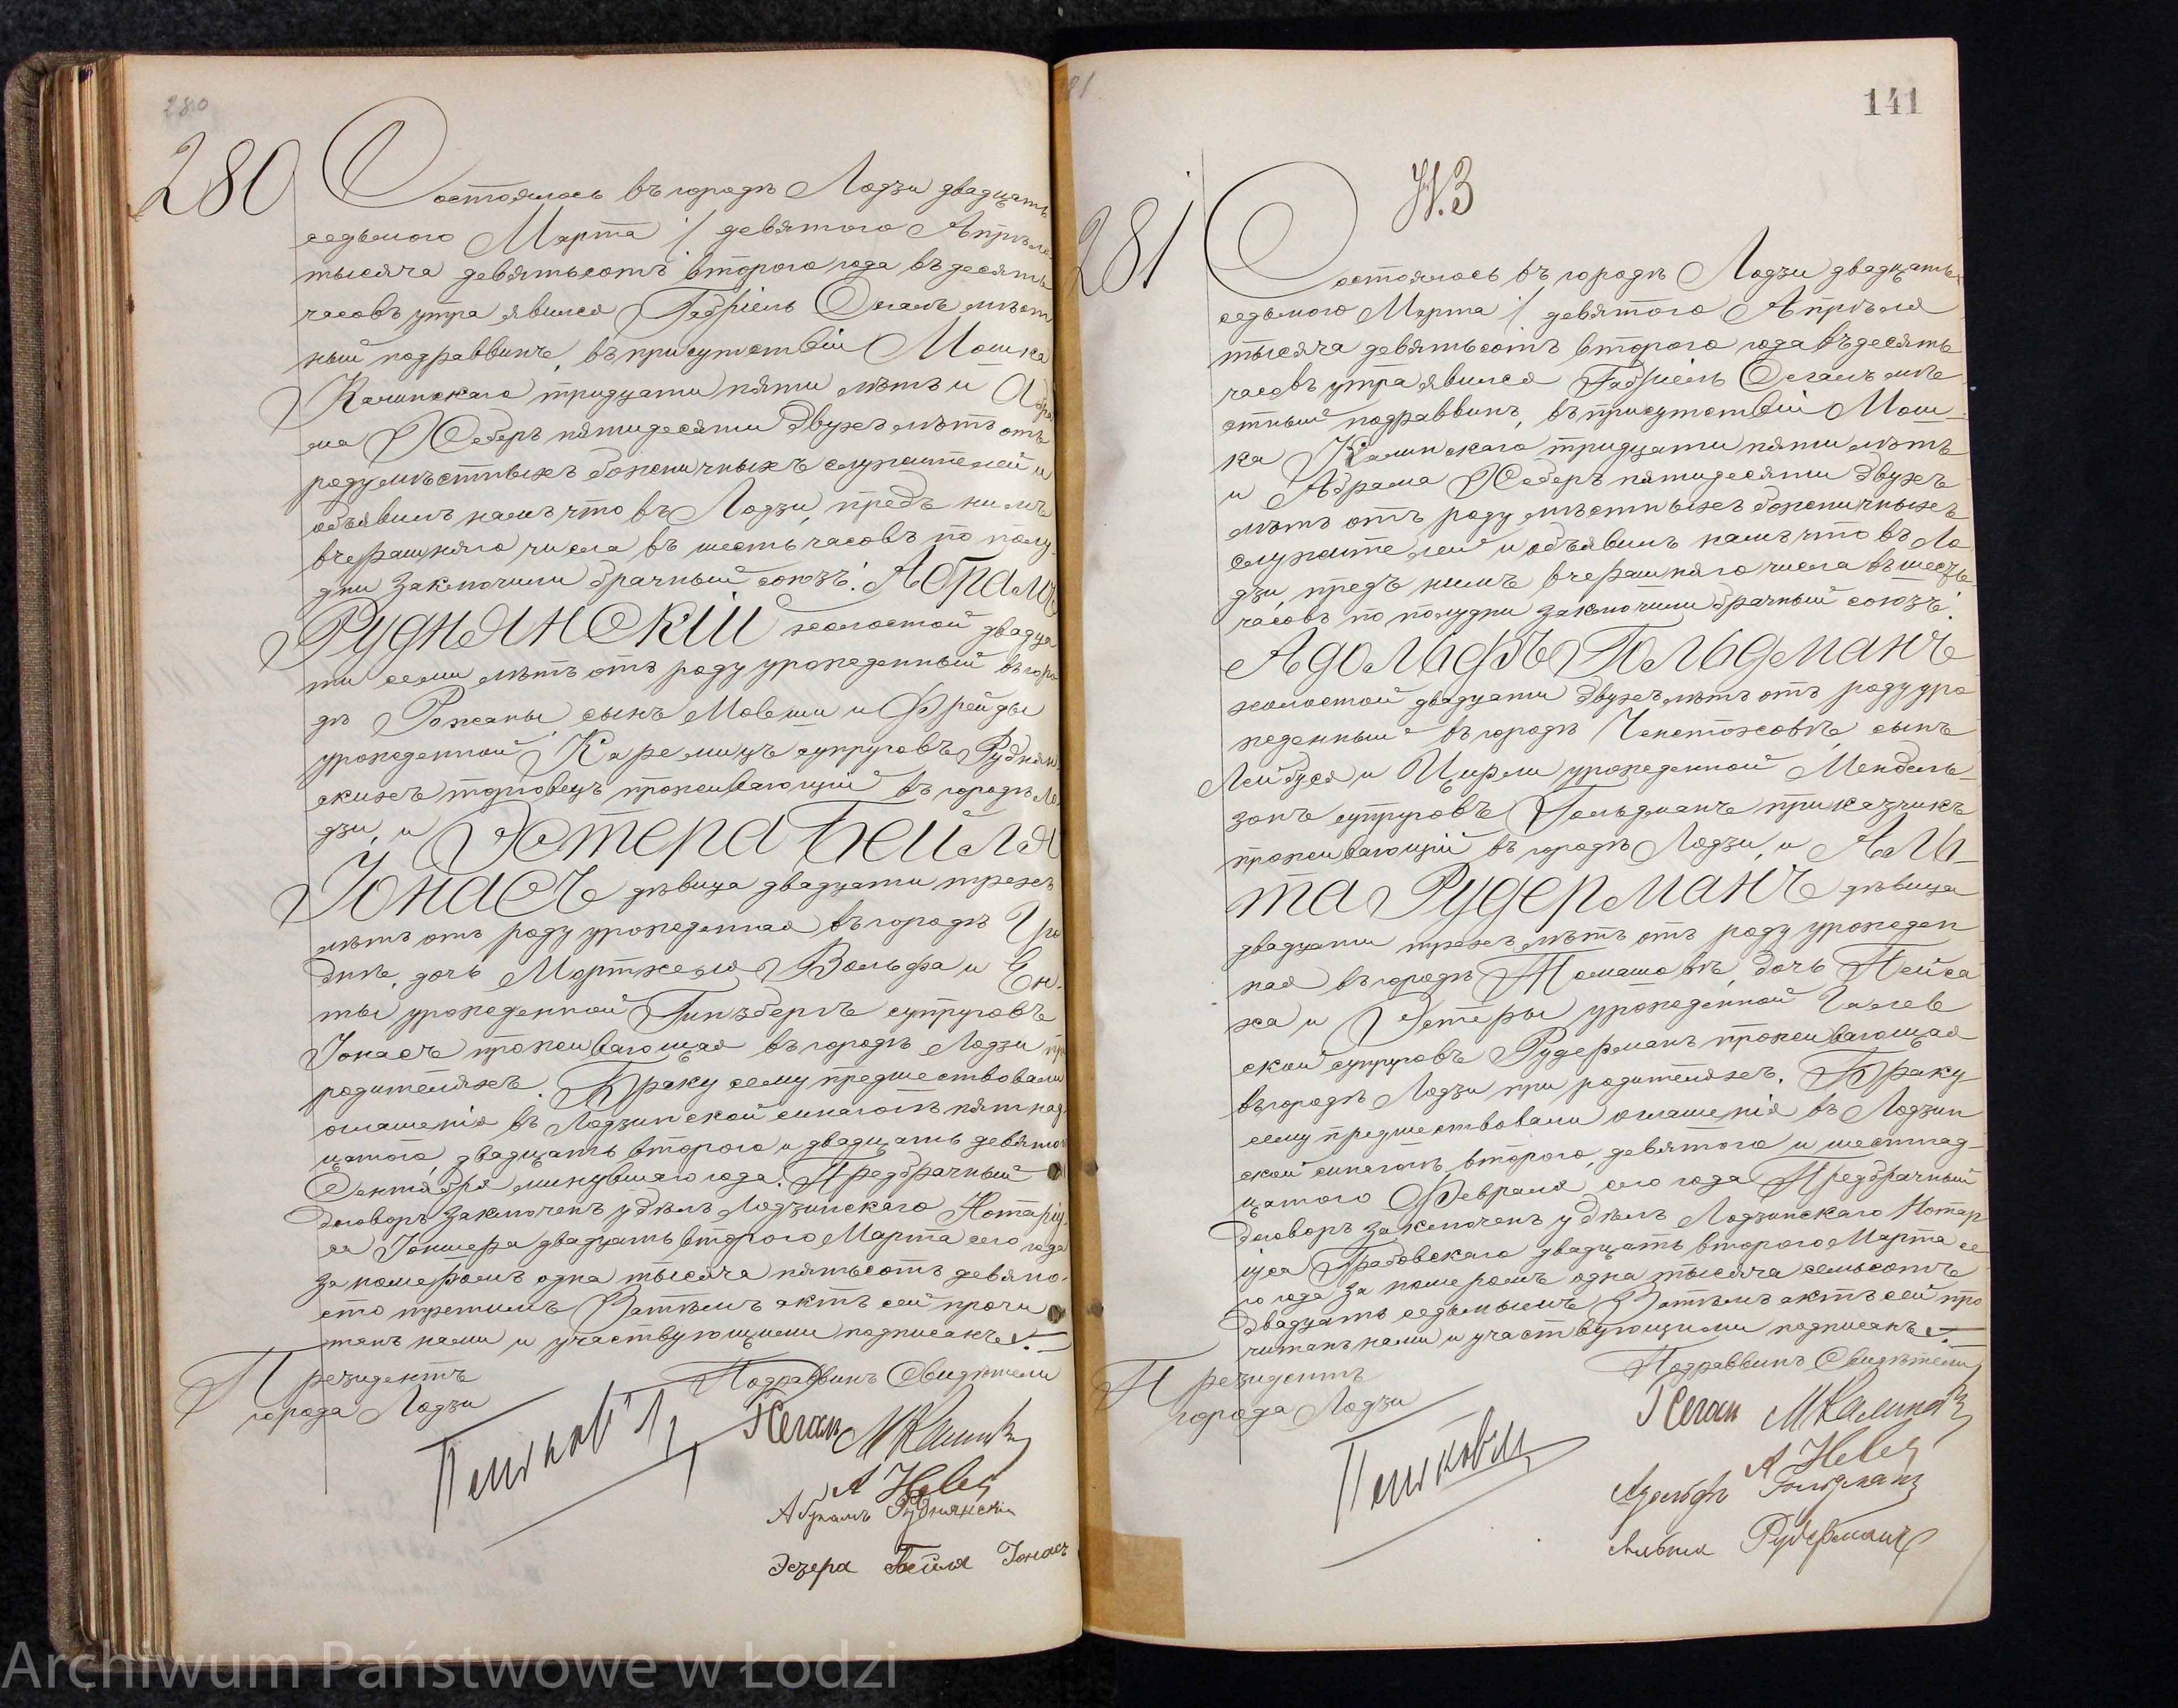 280
280
Состоялось въ городѣ Лодзи двадцать
седьмого Марта / девятого Апрѣля
тысяча девятьсотъ второго года въ десять
часовъ утра явился Габріель Сегалъ мѣст
ный подраввинъ, въ присутствіи Мошка
Калинскаго тридцати пяти лѣтъ и Абра
ма Хеберъ пятидесяти двухъ лѣтъ отъ
роду мѣстныхъ божничныхъ служителей и
объявилъ намъ что въ Лодзи, предъ нимъ
вчерашняго числа въ шесть часовъ по полу
дни заключили брачный союзъ: Абрамъ
Руднянскій холостой двадца
ти семи лѣтъ отъ роду урожденный въ горо
дѣ Рожаны, сынъ Мовши и Фрейды
урожденной Каремицъ супруговъ Руднян
скихъ торговецъ проживающій въ городѣ Ло
дзи, и Эстера Бейля
Іонасъ дѣвица двадцати трехъ
лѣтъ отъ роду урожденная въ городѣ Гро
днѣ, дочь Мортхеля Вольфа и Ен-
ты урожденной Гинзбергъ супруговъ
Іонасъ проживающая въ городѣ Лодзи при
родителяхъ. Браку сему предшествовали
оглашенія въ Лодзинской синагогѣ пятнад
цатого, двадцать второго и двадцать девятого
Сентября минувшаго года. Предбрачный
договоръ заключенъ у дѣлъ Лодзинскаго Нотаріу
са Іоншера двадцать второго Марта сего года
за номеромъ одна тысяча пятьсотъ девяно-
сто третимъ Затѣмъ актъ сей прочи
танъ нами и участвующими подписанъ.
Президентъ
города Лодзи
Подраввинъ Свидѣтели
Пеньковскій
Г Сегалъ М Калински
А Heber
Абрамъ Руднянскій
Эстера Бейля Іонасъ
281
141
N. 3
281
Состоялось въ городѣ Лодзи двадцать
седьмого Марта / девятого Апрѣля
тысяча девятьсотъ второго года въ десять
часовъ утра явился Габріель Сегалъ мѣ
стный подраввинъ, въ присутствіи Мош-
ка Калинскаго тридцати пяти лѣтъ
и Абрама Хеберъ пятидесяти двухъ
лѣтъ отъ роду мѣстныхъ божничныхъ
служителей и объявилъ намъ что въ Ло
дзи, предъ нимъ вчерашняго числа въ шесть
часовъ по полудни заключили брачный союзъ:
Адольфъ Гольдманъ
холостой двадцати двухъ лѣтъ отъ роду уро
жденный въ городѣ Ченстоховѣ, сынъ
Лейбуся и Цирли урожденной Мендель-
зонъ супруговъ Гольдманъ приказчикъ
проживающій въ городѣ Лодзи, и Аль-
та Рудерманъ дѣвица
двадцати трехъ лѣтъ отъ роду урожден
ная въ городѣ Томашовѣ, дочь Пейса
ха и Эстеры урожденной Галев
ской супруговъ Рудерманъ проживающая
въ городѣ Лодзи при родителяхъ. Браку
сему предшествовали оглашенія въ Лодзин
ской синагогѣ второго, девятого и шестнад-
цатого Февраля сего года Предбрачный
договоръ заключенъ у дѣлъ Лодзинскаго Нотар
іуса Грабовскаго двадцать второго Марта се
го года за номеромъ одна тысяча семьсотъ
двадцать седьмымъ Затѣмъ актъ сей про
читанъ нами и участвующими подписанъ.
Президентъ
города Лодзи
Подраввинъ Свидѣтели
Пеньковскій
Г Сегалъ М Калински
А Heber
Адольфъ Гольдманъ
Альта Рудерманъ
Archiwum Państwowe w Łodzi